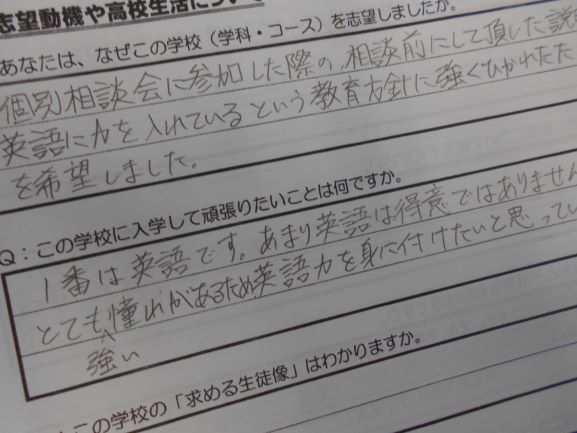 志望動機や高校生活につい
あなたは、なぜこの学校（学科・コース）を志望しましたか。
個別相談会に参加した際の、相談前にして頂いた説
英語に力を入れているという教育方針に強くひかれたた
を希望しました。
Q：この学校に入学して頑張りたいことは何ですか。
1番は英語です。あまり英語は得意ではありません
とても憧れがあるため英語力を身に付けたいと思ってい
強い
この学校の「求める生徒像」はわかりますか。